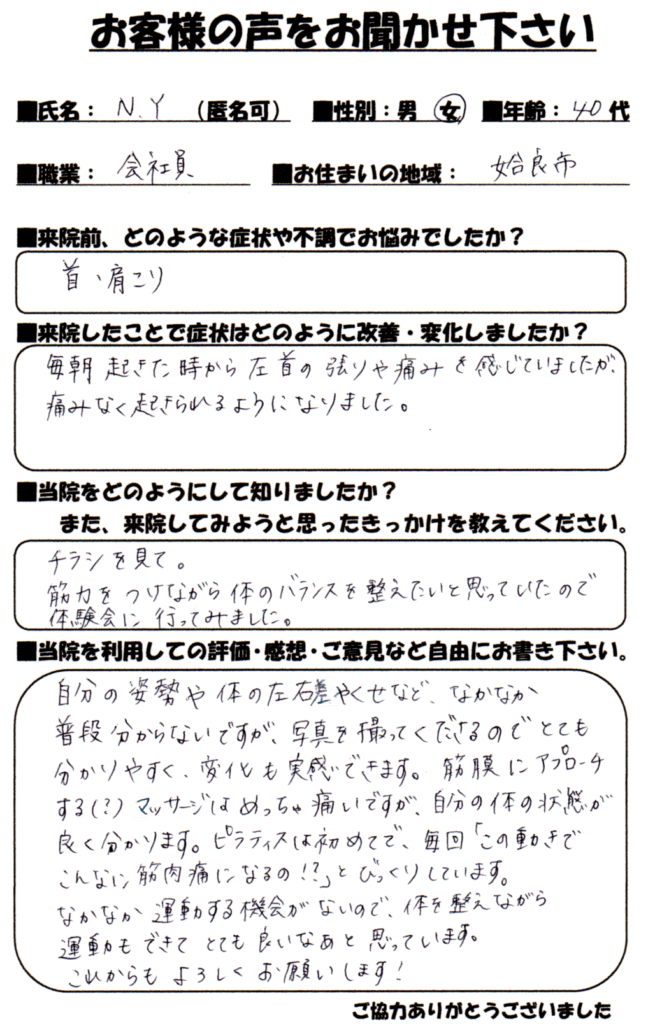 お客様の声をお聞かせ下さい
■氏名： N.Y （匿名可） ■性別：男 女 ■年齢： 40 代
■職業： 会社員 ■お住まいの地域： 姶良市
■来院前、どのような症状や不調でお悩みでしたか？
首、肩こり
■来院したことで症状はどのように改善・変化しましたか？
毎朝 起きた時から 左首の 張りや痛みを感じていましたが、
痛みなく起きられるようになりました。
■当院をどのようにして知りましたか？
また、来院してみようと思ったきっかけを教えてください。
チラシを見て。
筋力を つけながら 体のバランスを整えたいと思っていたので
体験会に 行ってみました。
■当院を利用しての評価・感想・ご意見など自由にお書き下さい。
自分の姿勢や体の左右差やくせなど、なかなか
普段分からないですが、写真を撮ってくださるのでとても
分かりやすく、変化も実感できます。筋膜にアプローチ
する(?)マッサージはめっちゃ痛いですが、自分の体の状態が
良く分かります。ピラティスは初めてで、毎回「この動きで
こんなに筋肉痛になるの!?」とびっくりしています。
なかなか運動する機会がないので、体を整えながら
運動もできて とても良いなぁと思っています。
これからも よろしくお願いします!
ご協力ありがとうございました